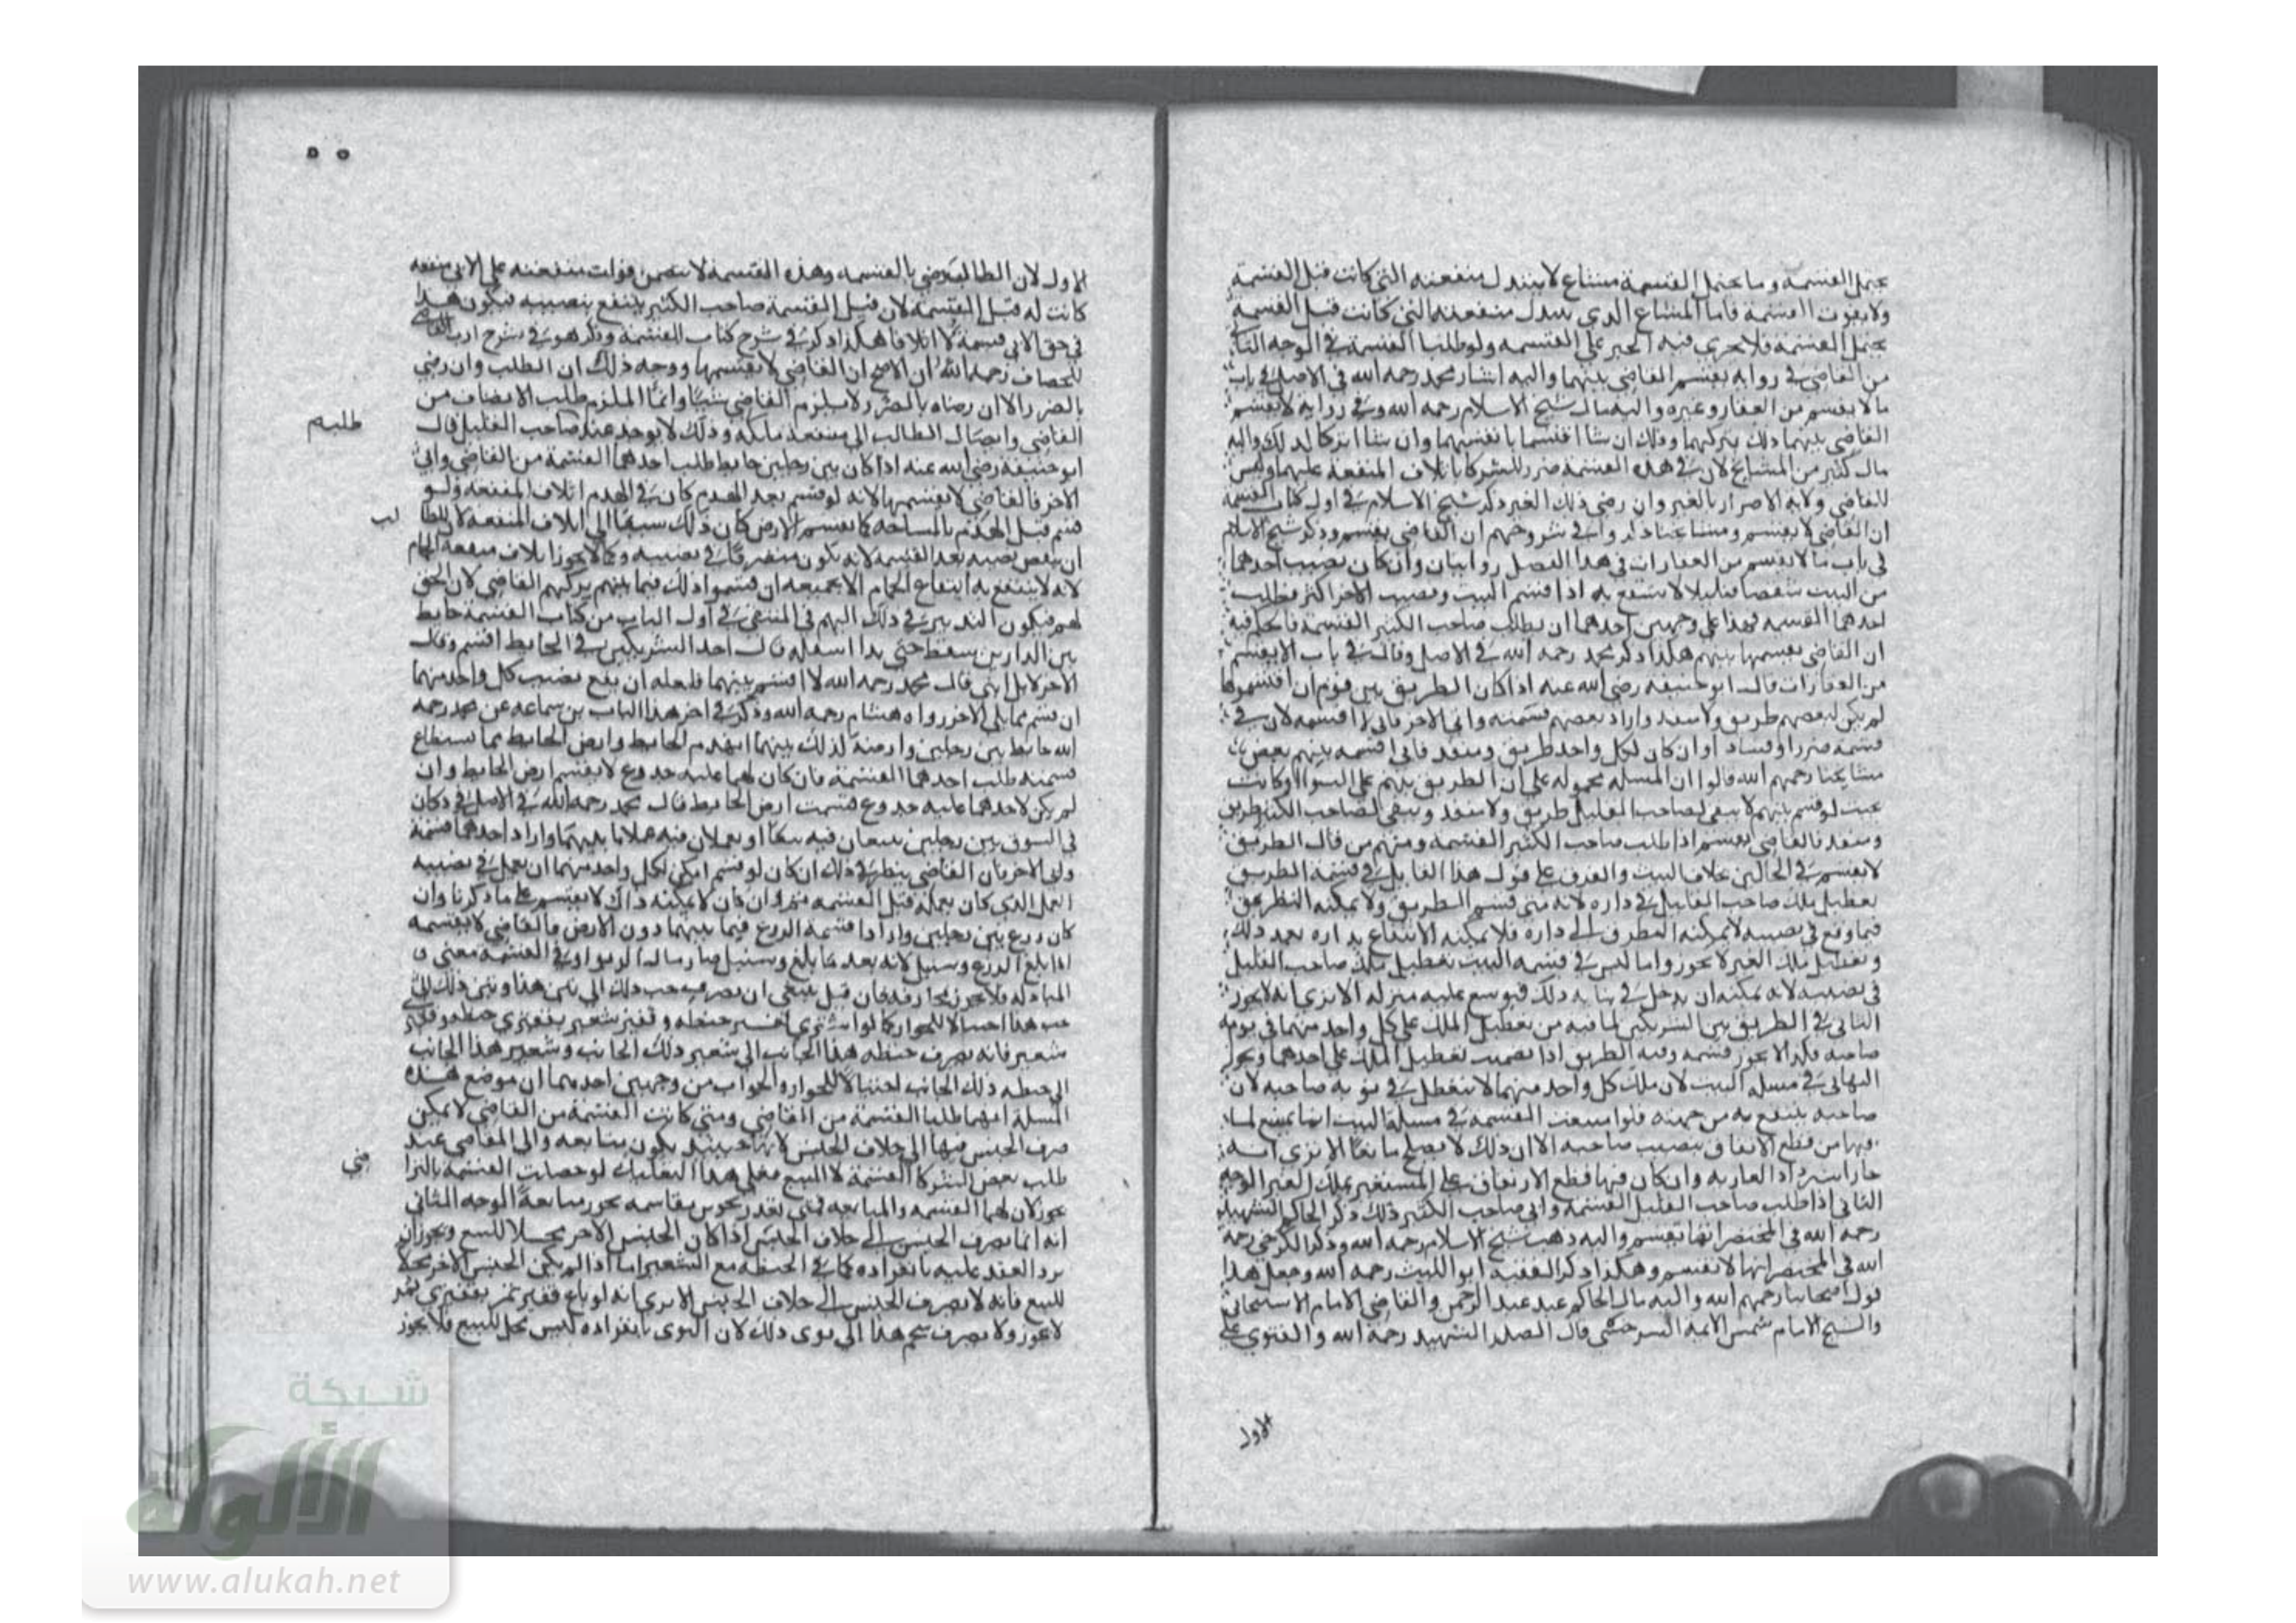 يحتمل القسمة وما يحتمل القسمة مشاع لا يتبدل منفعته التي كانت قبل القسمة
ولا يفوت القسمة فاما المشاع الذي يتبدل منفعته التي كانت قبل القسمة
يحتمل القسمة فلا يجري فيه الجبر على القسمة ولو طلبا القسمة في الوجه الثاني
من القاضي في رواية يقسم القاضي بينهما واليه اشار محمد رحمه الله في الاصل في باب
ما لا يقسم من العقار وغيره واليه مال شيخ الاسلام رحمه الله وفي رواية لا يقسم
القاضي بينهما ذلك يتركهما وذلك ان شاا اقتسما بانفسهما وان شاا تركا كذلك واليه
مال كثير من المشايخ لان في هذه القسمة ضرر للشركا باتلاف المنفعة عليهما وليس
للقاضي ولاية الاضرار بالغير وان رضي ذلك الغير ذكر شيخ الاسلام في اول كتاب القسمة
ان القاضي لا يقسم ومشايخنا ذكروا في شروحهم ان القاضي يقسم وذكر شيخ الاسلام
في باب ما لا يقسم من العقارات في هذا الفصل روايتان وان كان نصيب احدهما
من البيت شقصا قليلا لا ينتفع به اذا قسم البيت ونصيب الاخر اكثر فطلب
احدهما القسمة فهذا على وجهين احدهما ان يطلب صاحب الكثير القسمة فالحكم فيه
ان القاضي يقسمها بينهم هكذا ذكر محمد رحمه الله في الاصل وقال في باب لا يقسم
من العقارات قال ابو حنيفة رضي الله عنه اذا كان الطريق بين قوم ان اقتسموها
لم يكن لبعضهم طريق ولا منفذ واراد بعضهم قسمته وابى الاخر فاني لا اقسمه لان في
قسمة ضررا وفسادا وان كان لكل واحد طريق ومنفذ فاني اقسمه بينهم بعض
مشايخنا رحمهم الله قالوا ان المسلة محمولة على ان الطريق بينهم على السواء او كانت
بحيث لو قسم بينهم لا يبقى لصاحب القليل طريق ولا منفذ ويبقى لصاحب الكثير طريق
ومنفذ فالقاضي يقسم اذا طلب صاحب الكثير القسمة ومنهم من قال الطريق
لا يقسم في الحالين بخلاف البيت والفرق على قول هذا القايل في قسمة الطريق
تعطيل ملك صاحب القليل في داره لانه متى قسم الطريق ولا يمكنه التطرق
فيما وقع في نصيبه لا يمكنه التطرق الى داره فلا يمكنه الانتفاع بداره بعد ذلك
وتعطيل ملك الغير لا يجوز واما ليس في قسمة البيت تعطيل ملك صاحب القليل
في نصيبه لانه يمكنه ان يدخل في بنايه ذلك فيوسع عليه منزله الا ترى انه لا يجوز
التاني في الطريق بين الشريكين لما فيه من تعطيل الملك على كل واحد منهما في يوم
صاحبه فكذا لا يجوز قسمة رقبة الطريق اذا تضمنت تعطيل الملك على احدهما ويجوز
التهاني في مسلة البيت لان ملك كل واحد منهما لا يتعطل في نوبة صاحبه لان
صاحبه ينتفع به من جهته فلو امتنعت القسمة في مسلة البيت انما يمتنع لما
فيها من قطع الارتفاق بنصيب صاحبه الا ان ذلك لا يصلح مانعا الا ترى انه
جاز استرداد العارية وان كان فيها قطع الارتفاق على المستعير بملك الغير الوجه
الثاني اذا طلب صاحب القليل القسمة وابى صاحب الكثير ذلك ذكر الحاكم الشهيد
رحمه الله في المختصر انها تقسم واليه ذهب شيخ الاسلام رحمه الله وذكر الكرخي رحمه
الله في المختصر انها لا تقسم وهكذا ذكر الفقيه ابو الليث رحمه الله وجعل هذا
قول اصحابنا رحمهم الله واليه مال الحاكم عبد الرحمن والقاضي الامام الاسبيجابي
والشيخ الامام شمس الايمة السرخسي قال الصدر الشهيد رحمه الله والفتوى على
الاول
٥٥
الاول لان الطالب رضي بالقسمة وهذه القسمة لا تتضمن فوات منفعته على الابي منفعة
كانت له قبل القسمة لان قبل القسمة صاحب الكثير ينتفع بنصيبه فيكون هذا
في حق الابي قسمة لا اتلافا هكذا ذكر في شرح كتاب القسمة وذكر هو في شرح ادب القاضي
للخصاف رحمه الله ان الاصح ان القاضي لا يقسمها ووجه ذلك ان الطلب وان رضي
بالضرر الا ان رضاه بالضرر لا يلزم القاضي شيا وانما الملزم طلب الانصاف من
طلبه
القاضي وايصال الطالب الى منفعة ملكه وذلك لا يوجد عند صاحب القليل قال
ابو حنيفة رضي الله عنه اذا كان بين رجلين حايط طلب احدهما القسمة من القاضي وابى
الاخر فالقاضي لا يقسمها لانه لو قسم بعد الهدم كان في الهدم اتلاف المنفعة ولو
قسم قبل الهدم بالمساحة كما يقسم الارض كان ذلك سببا الى اتلاف المنفعة لان للطا
لب
ان ينقض نصيبه بعد القسمة لانه يكون متصرفا في نصيبه وكما لا يجوز اتلاف منفعة الحمام
لانه لا ينتفع به انتفاع الحمام الا بجميعه ان قسموا ذلك فيما بينهم يتركهم القاضي لان الحق
لهم فيكون التدبير في ذلك اليهم في المنتقى في اول الباب من كتاب القسمة حايط
بين الدارين سقط حتى بدا اسفله قال احد الشريكين في الحايط اقسم وقال
الاخر لا بل ابني قال محمد رحمه الله لا اقسم بينهما فلعله ان يقع نصيب كل واحد منهما
ان قسم مما يلي الاخر رواه هشام رحمه الله وذكر في اخر هذا الباب بن سماعه عن محمد رحمه
الله حايط بين رجلين وارضه كذلك بينهما انهدم الحايط وارض الحايط مما يستطاع
قسمته طلب احدهما القسمة فان كان لهما عليه جذوع لا يقسم ارض الحايط وان
لم يكن لاحدهما عليه جذوع قسمت ارض الحايط قال محمد رحمه الله في الاصل في دكان
في السوق بين رجلين يبيعان فيه بيعا او يعملان فيه عملا بايديهما واراد احدهما قسمة
وابى الاخر فان القاضي ينظر في ذلك ان كان لو قسم امكن لكل واحد منهما ان يعمل في نصيبه
العمل الذي كان يعمله قبل القسمة قسم وان كان لا يمكنه ذاك لا يقسم على ما ذكرنا وان
كان زرع بين رجلين وارادا قسمة الزرع فيما بينهما دون الارض فالقاضي لا يقسمه
اذا بلغ الزرع وسنبل لانه بعد ما بلغ وسنبل صار مال الربوا وفي القسمة معنى
المبادلة فلا يجوز مجازفة فان قيل ينبغي ان يصرف حب ذلك الى تبن هذا وتبن ذلك الى
حب هذا احتيالا للجواز كما لو اشترى قفيز حنطة وقفيز شعير بقفيزي حنطة وقفيز
شعير فانه يصرف حنطة هذا الجانب الى شعير ذلك الجانب وشعير هذا الجانب
الى حنطة ذلك الجانب احتيالا للجواز والجواب من وجهين احدهما ان موضع هذه
المسلة انهما طلبا القسمة من القاضي ومتى كانت القسمة من القاضي لا يمكن
صرف الجنس فيها الى خلاف الجنس لانها حينيذ يكون مبايعة والى القاضي عند
طلب بعض الشركا القسمة لا البيع فعلى هذا التعليل لو حصلت القسمة بالترا
ضي
يجوز لان لهما القسمة والمبايعة فمتى تعذر تجويز مقاسمة يجوز مبايعة الوجه الثاني
انه انما يصرف الجنس الى خلاف الجنس اذا كان الجنس الاخر محلا للبيع ويجوز ان
يرد العقد عليه بانفراده كما في الحنطة مع الشعير اما اذا لم يكن الجنس الاخر محلا
للبيع فانه لا يصرف الجنس الى خلاف الجنس الا ترى انه لو باع قفيز تمر بقفيزي تمر
لا يجوز ولا يصرف هذا الى نوى ذلك لان النوى بانفراده ليس بمحل للبيع فلا يجوز
شبكة
الألوكة
www.alukah.net